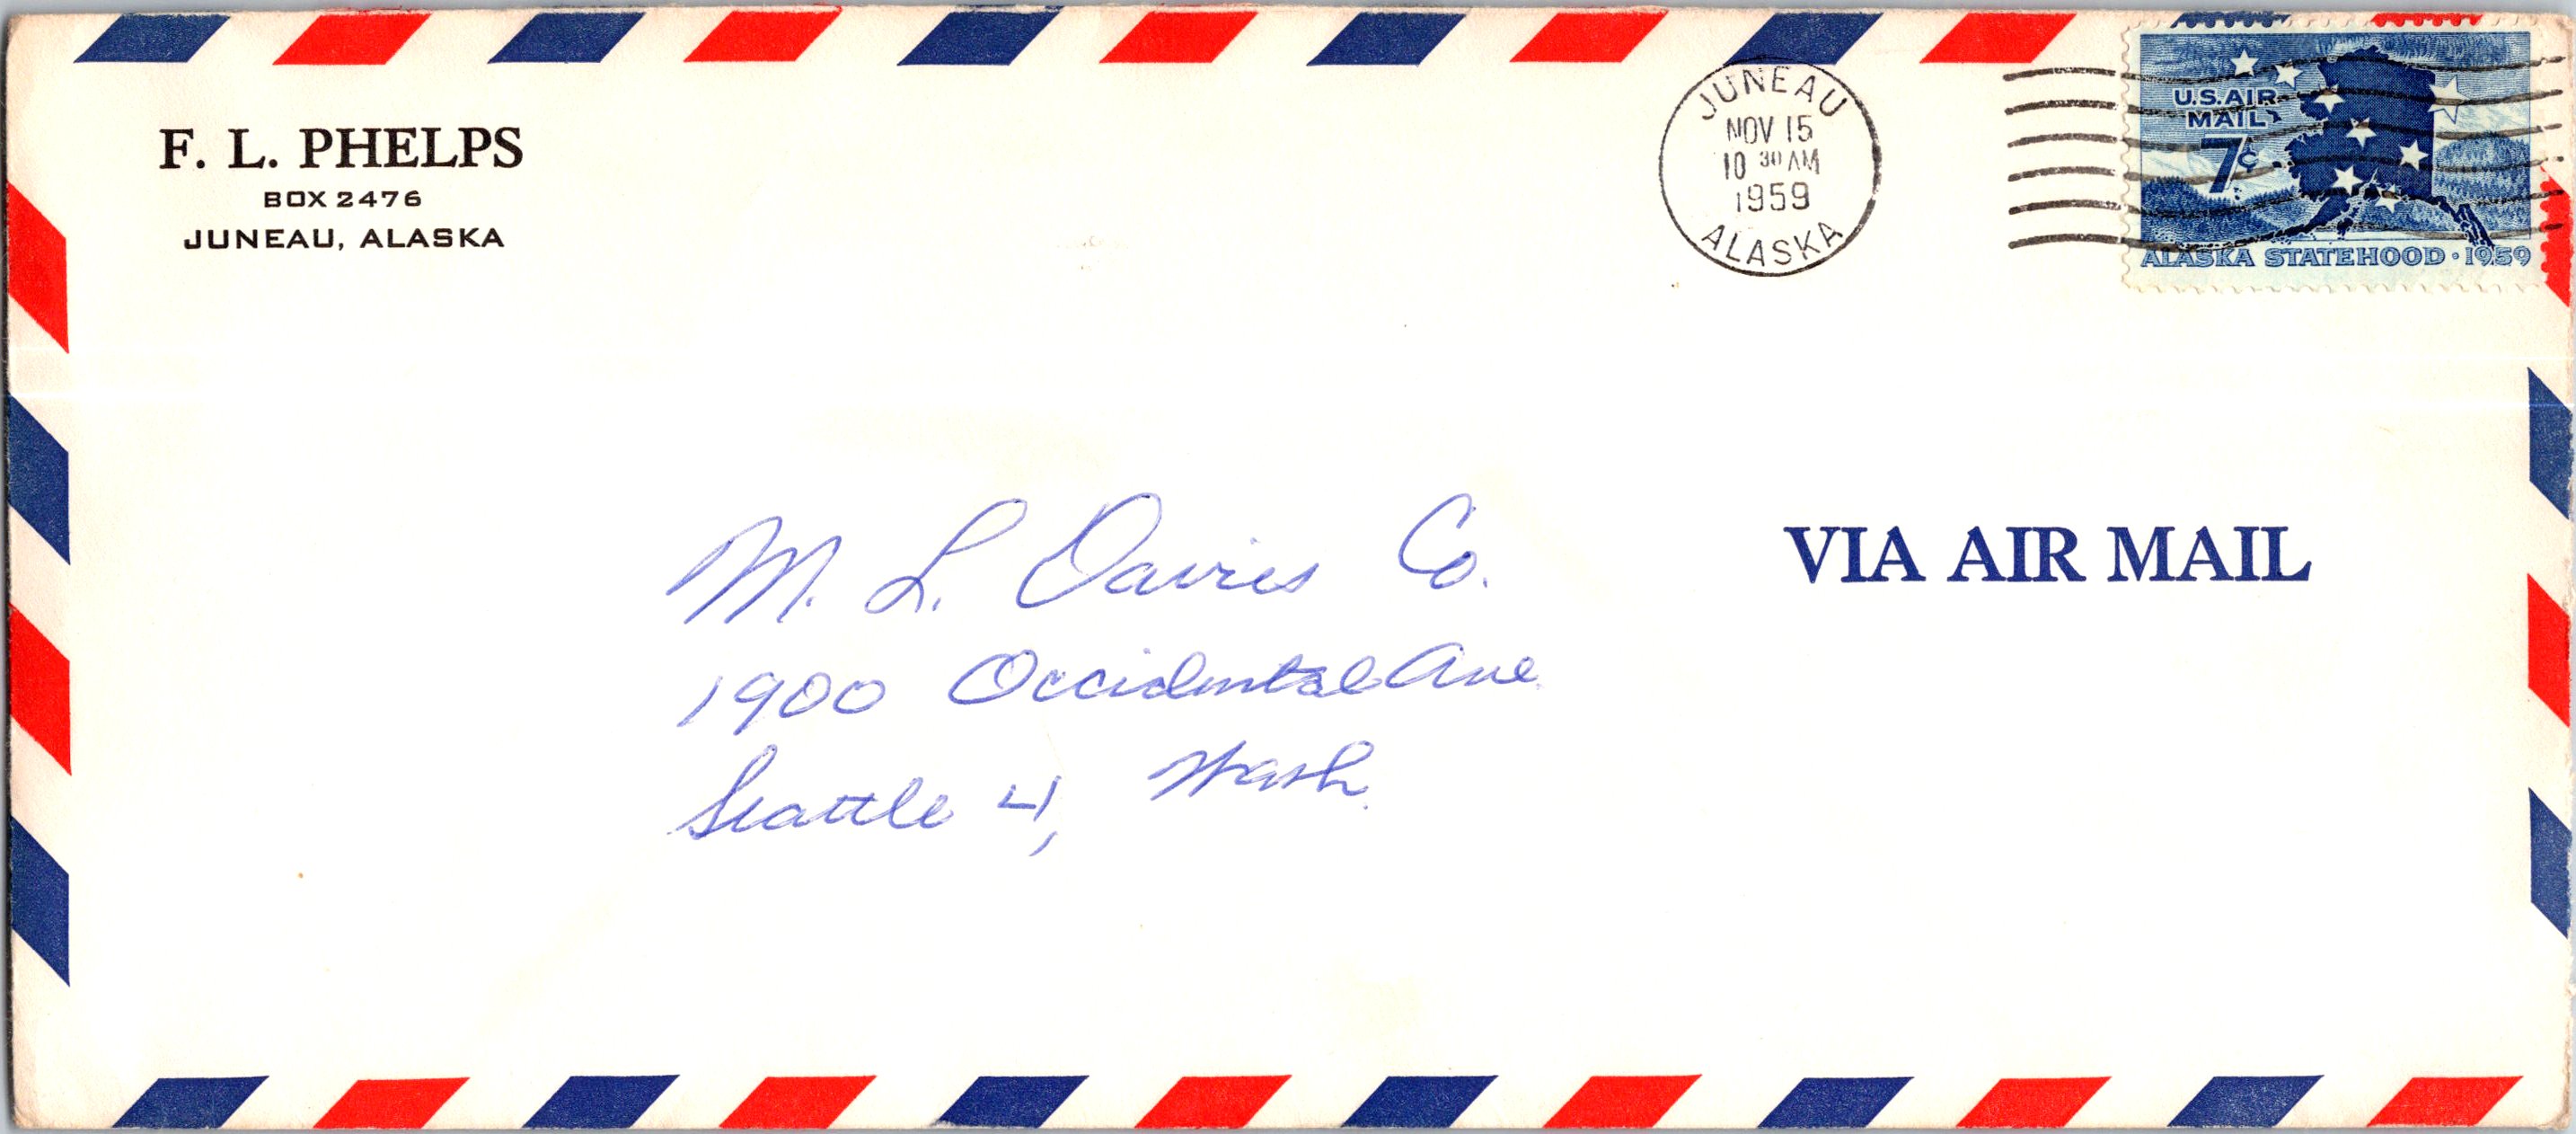 F. L. PHELPS
BOX 2476
JUNEAU, ALASKA
JUNEAU
NOV 15
10 30 AM
1959
ALASKA
U.S. AIR
MAIL
7¢
ALASKA STATEHOOD • 1959
M. L. Davies Co.
1900 Occidental Ave
Seattle 4, Wash.
VIA AIR MAIL